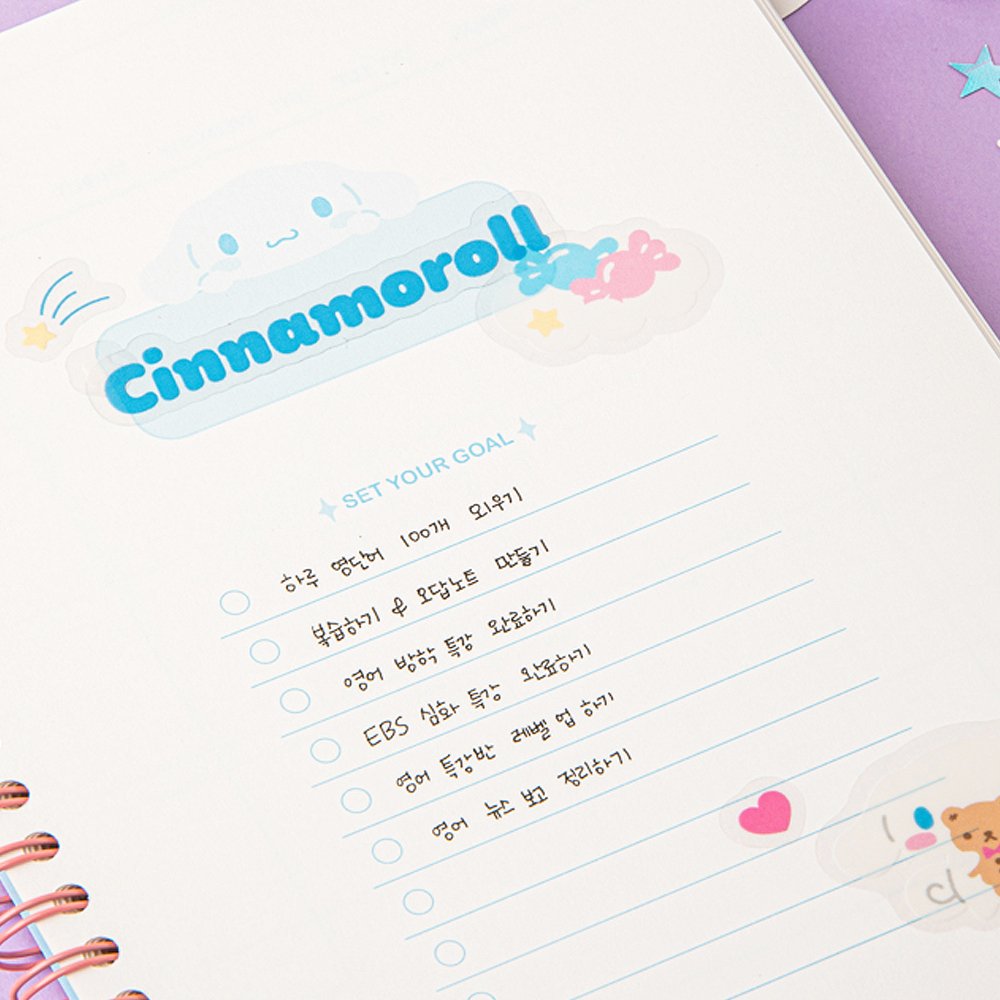 Cinnamoroll
SET YOUR GOAL
하루 영단어 100개 외우기
복습하기 & 오답노트 만들기
영어 방학 특강 완료하기
EBS 심화 특강 완료하기
영어 특강반 레벨 업 하기
영어 뉴스 보고 정리하기